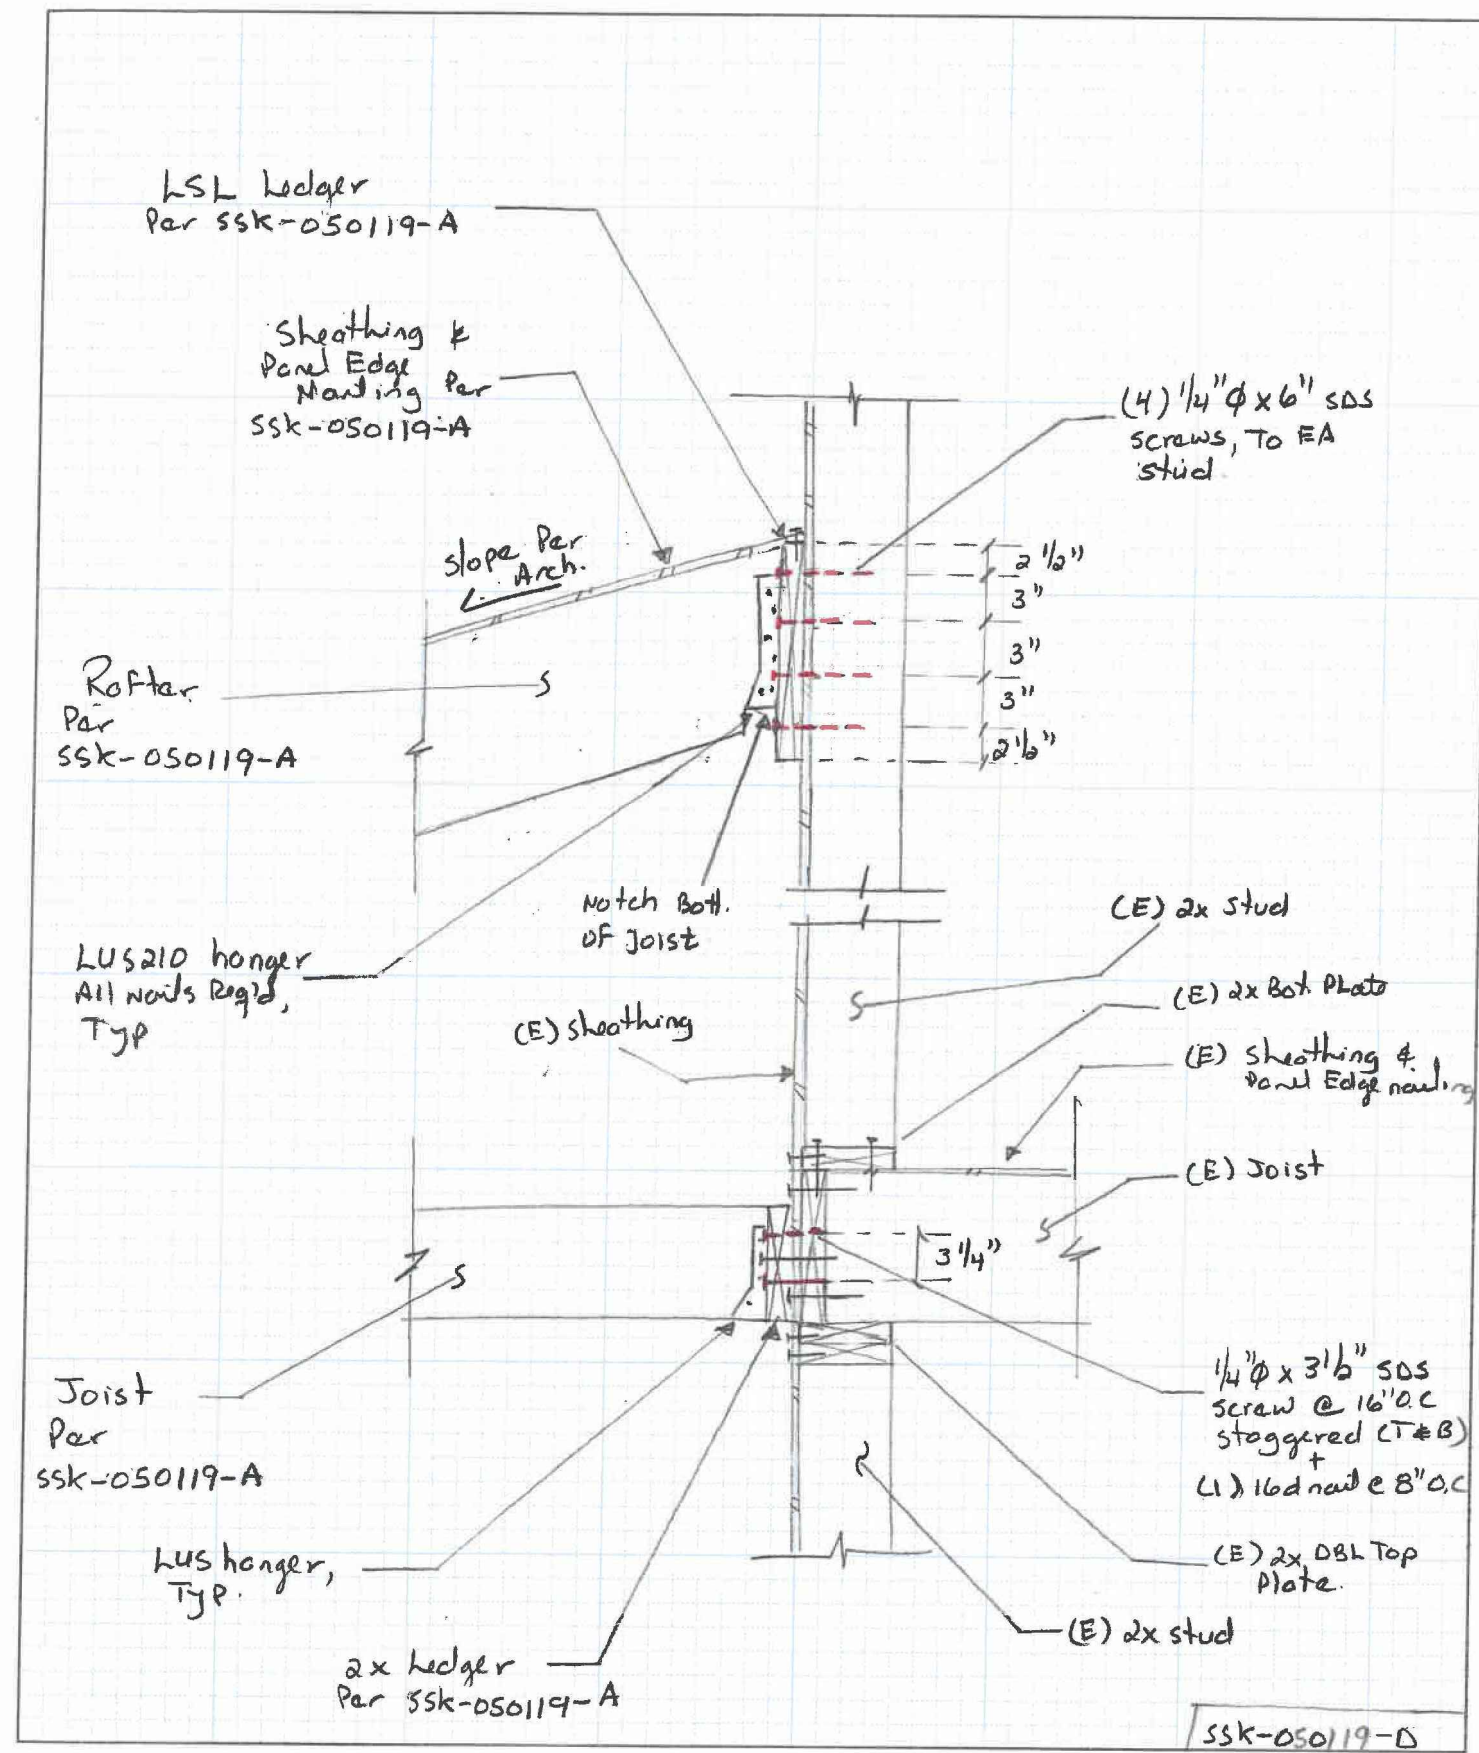 LSL Ledger
Per SSK-050119-A
Sheathing &
Panel Edge
Nailing Per
SSK-050119-A
(4) 1/4"Φ x 6" SDS
screws, To EA
stud
slope Per
Arch.
2 1/2"
3"
3"
3"
2 1/2"
Rafter
Per
SSK-050119-A
Notch Bott.
OF Joist
(E) 2x Stud
LUS210 hanger
All Nails Req'd,
Typ
(E) 2x Bot. Plate
(E) sheathing
(E) Sheathing &
Panel Edge nailing
(E) Joist
3 1/4"
Joist
Per
SSK-050119-A
1/4"Φ x 3 1/2" SDS
screw @ 16" O.C
staggered (T&B)
+
(1) 16d nail @ 8" O.C
LUS hanger,
Typ.
(E) 2x DBL Top
Plate.
(E) 2x stud
2x Ledger
Per SSK-050119-A
SSK-050119-D